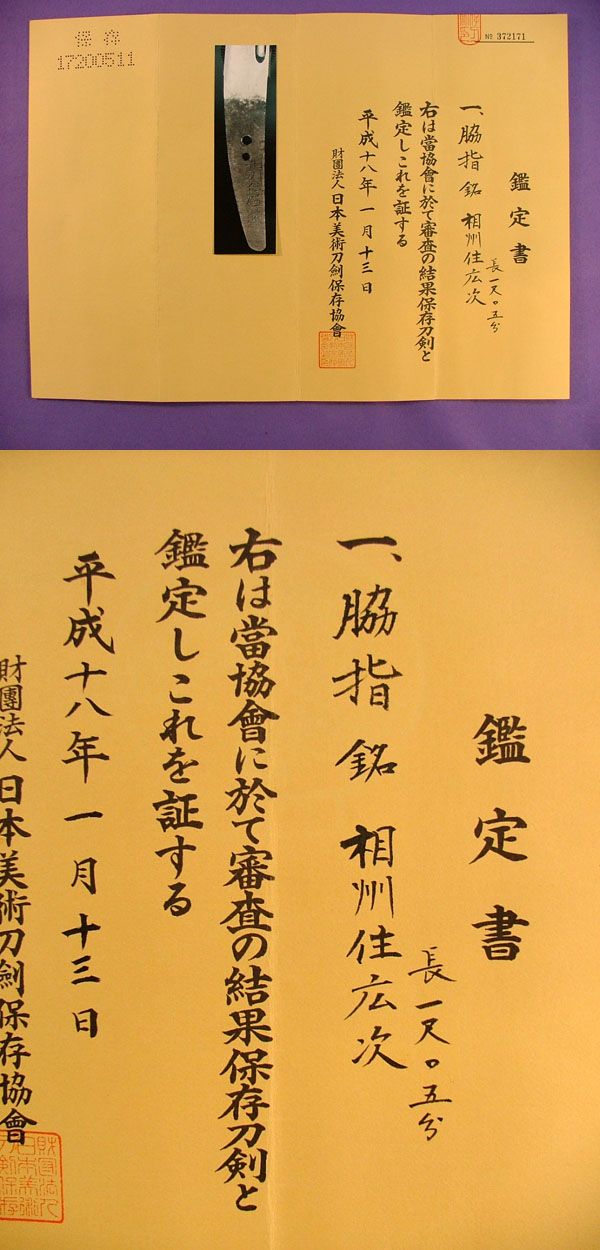 保存
17200511
№ 372171
鑑定書
一、脇指 銘 相州住広次
長一尺〇五分
右は當協會に於て審査の結果保存刀剣と
鑑定しこれを証する
平成十八年一月十三日
財團法人日本美術刀劍保存協會
鑑定書
一、脇指 銘 相州住広次
長一尺〇五分
右は當協會に於て審査の結果保存刀剣と
鑑定しこれを証する
平成十八年一月十三日
財團法人日本美術刀劍保存協會